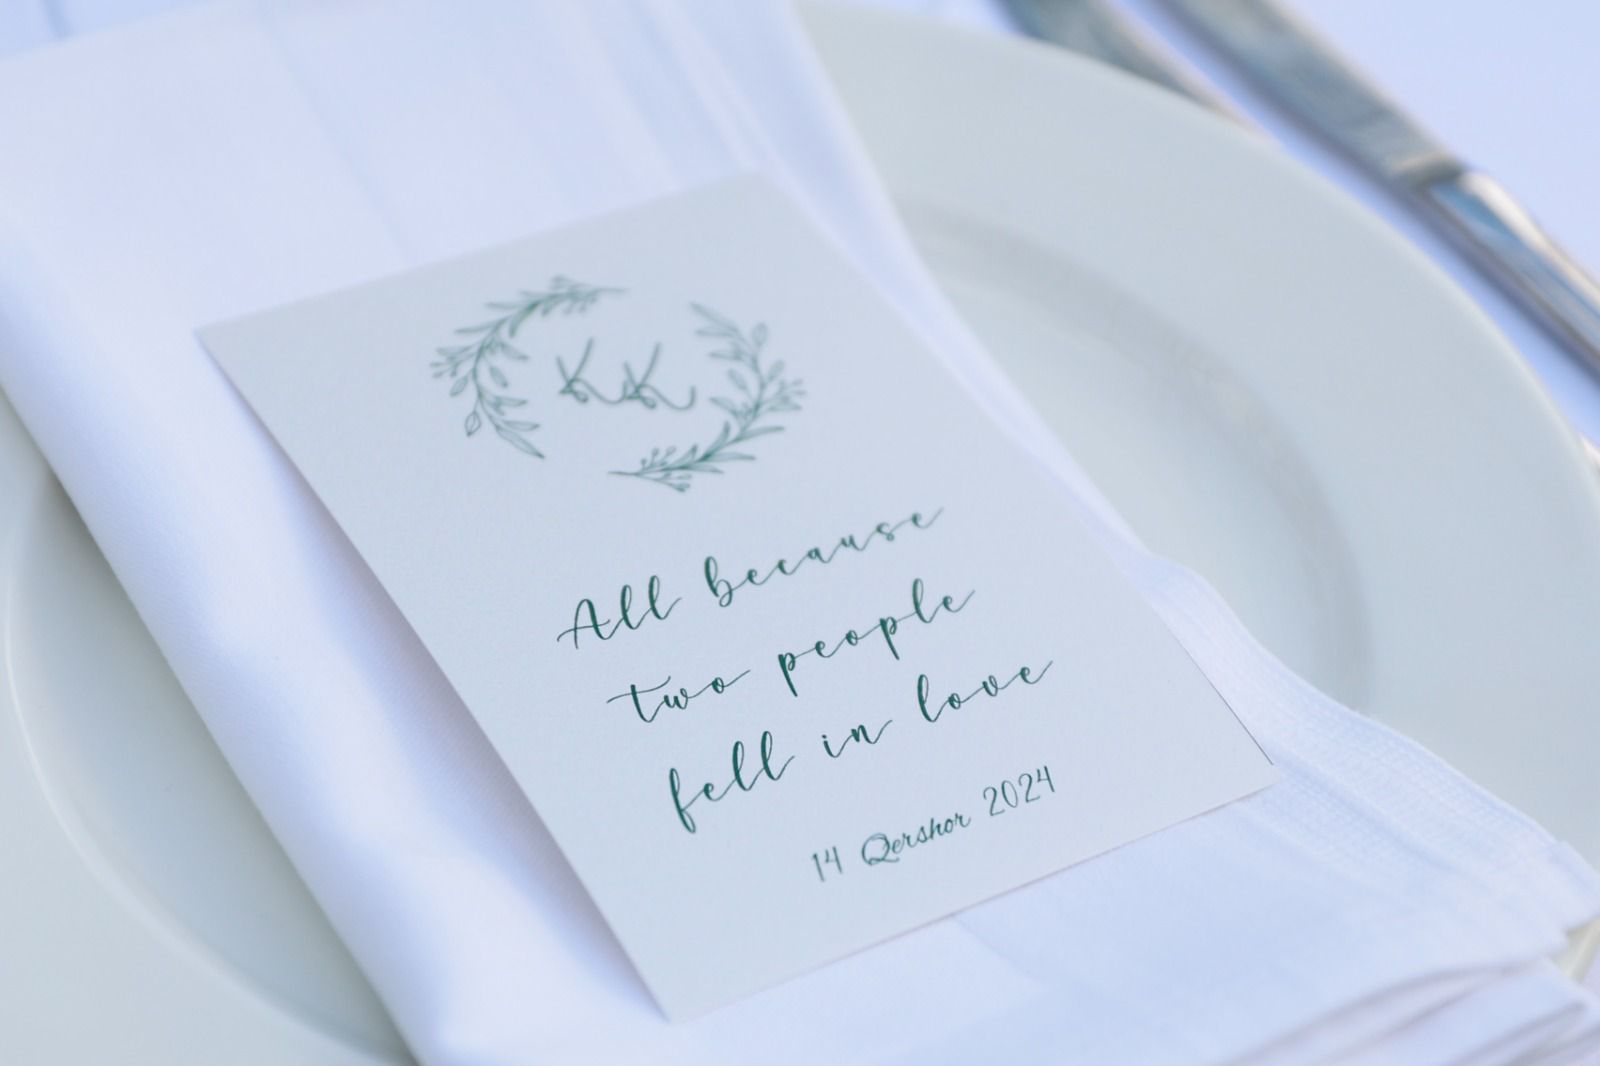 KK
All because
two people
fell in love
14 Qershor 2024